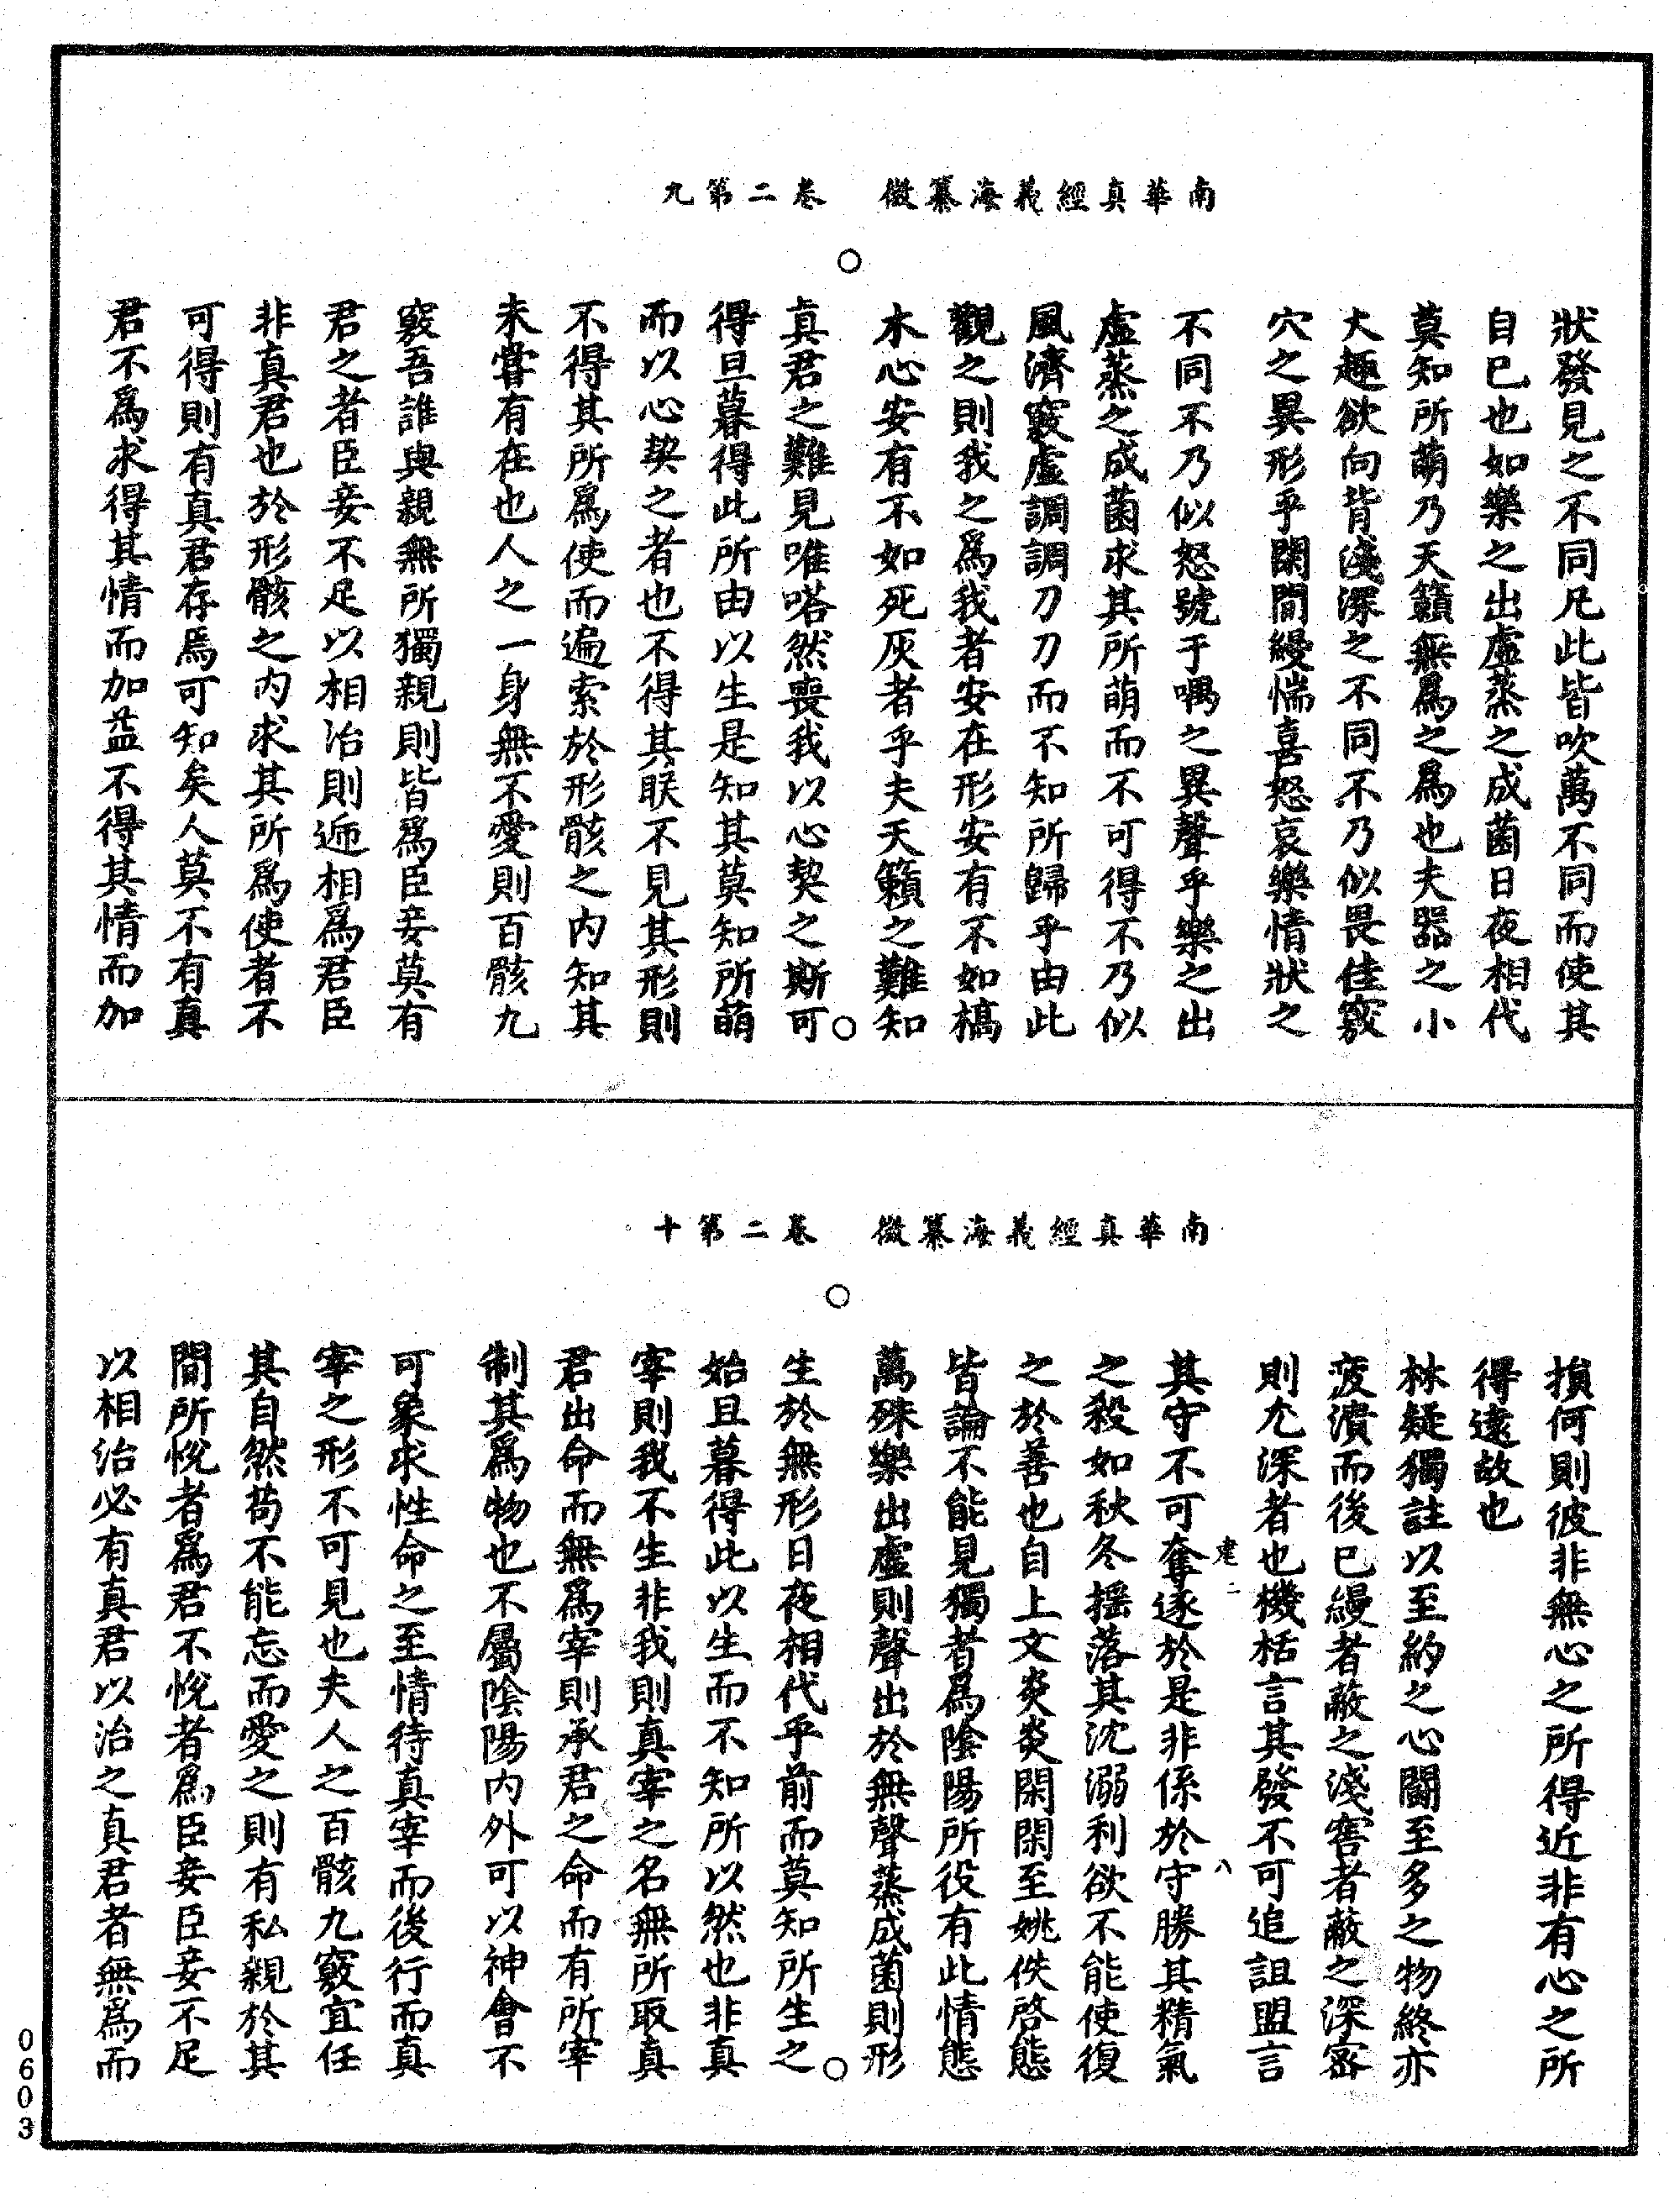 南華真經義海纂微　卷二第九
狀發見之不同凡此皆吹萬不同而使其
自已也如樂之出虛蒸之成菌日夜相代
莫知所萌乃天籟無爲之爲也夫器之小
大趣欲向背淺深之不同不乃似畏佳竅
穴之異形乎閑間縵惴喜怒哀樂情狀之
不同不乃似怒號于喁之異聲乎樂之出
虛蒸之成菌求其所萌而不可得不乃似
風濟竅虛調調刀刀而不知所歸乎由此
觀之則我之爲我者安在形安有不如槁
木心安有不如死灰者乎夫天籟之難知
真君之難見唯嗒然喪我以心契之斯可
得旦暮得此所由以生是知其莫知所萌
而以心契之者也不得其眹不見其形則
不得其所爲使而遍索於形骸之內知其
未嘗有在也人之一身無不愛則百骸九
竅吾誰與親無所獨親則皆爲臣妾莫有
君之者臣妾不足以相治則遞相爲君臣
非真君也於形骸之內求其所爲使者不
可得則有真君存焉可知矣人莫不有真
君不爲求得其情而加益不得其情而加
南華真經義海纂微　卷二第十
損何則彼非無心之所得近非有心之所
得遠故也
林疑獨註以至約之心鬪至多之物終亦
疲潰而後已縵者蔽之淺窖者蔽之深密
則尤深者也機栝言其發不可追詛盟言
其守不可奪逐於是非係於守勝其精氣
之殺如秋冬搖落其沈溺利欲不能使復
之於善也自上文炎炎閑閑至姚佚啓態
皆論不能見獨者爲陰陽所役有此情態
萬殊樂出虛則聲出於無聲蒸成菌則形
生於無形日夜相代乎前而莫知所生之
始旦暮得此以生而不知所以然也非真
宰則我不生非我則真宰之名無所取真
君出命而無爲宰則承君之命而有所宰
制其爲物也不屬陰陽內外可以神會不
可象求性命之至情待真宰而後行而真
宰之形不可見也夫人之百骸九竅宜任
其自然苟不能忘而愛之則有私親於其
間所悅者爲君不悅者爲臣妾臣妾不足
以相治必有真君以治之真君者無爲而
0603